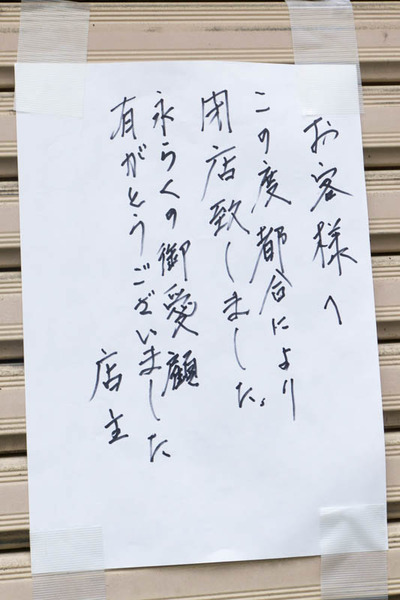 お客様へ
この度都合により
閉店致しました。
永らくの御愛顧
有がとうございました
店主